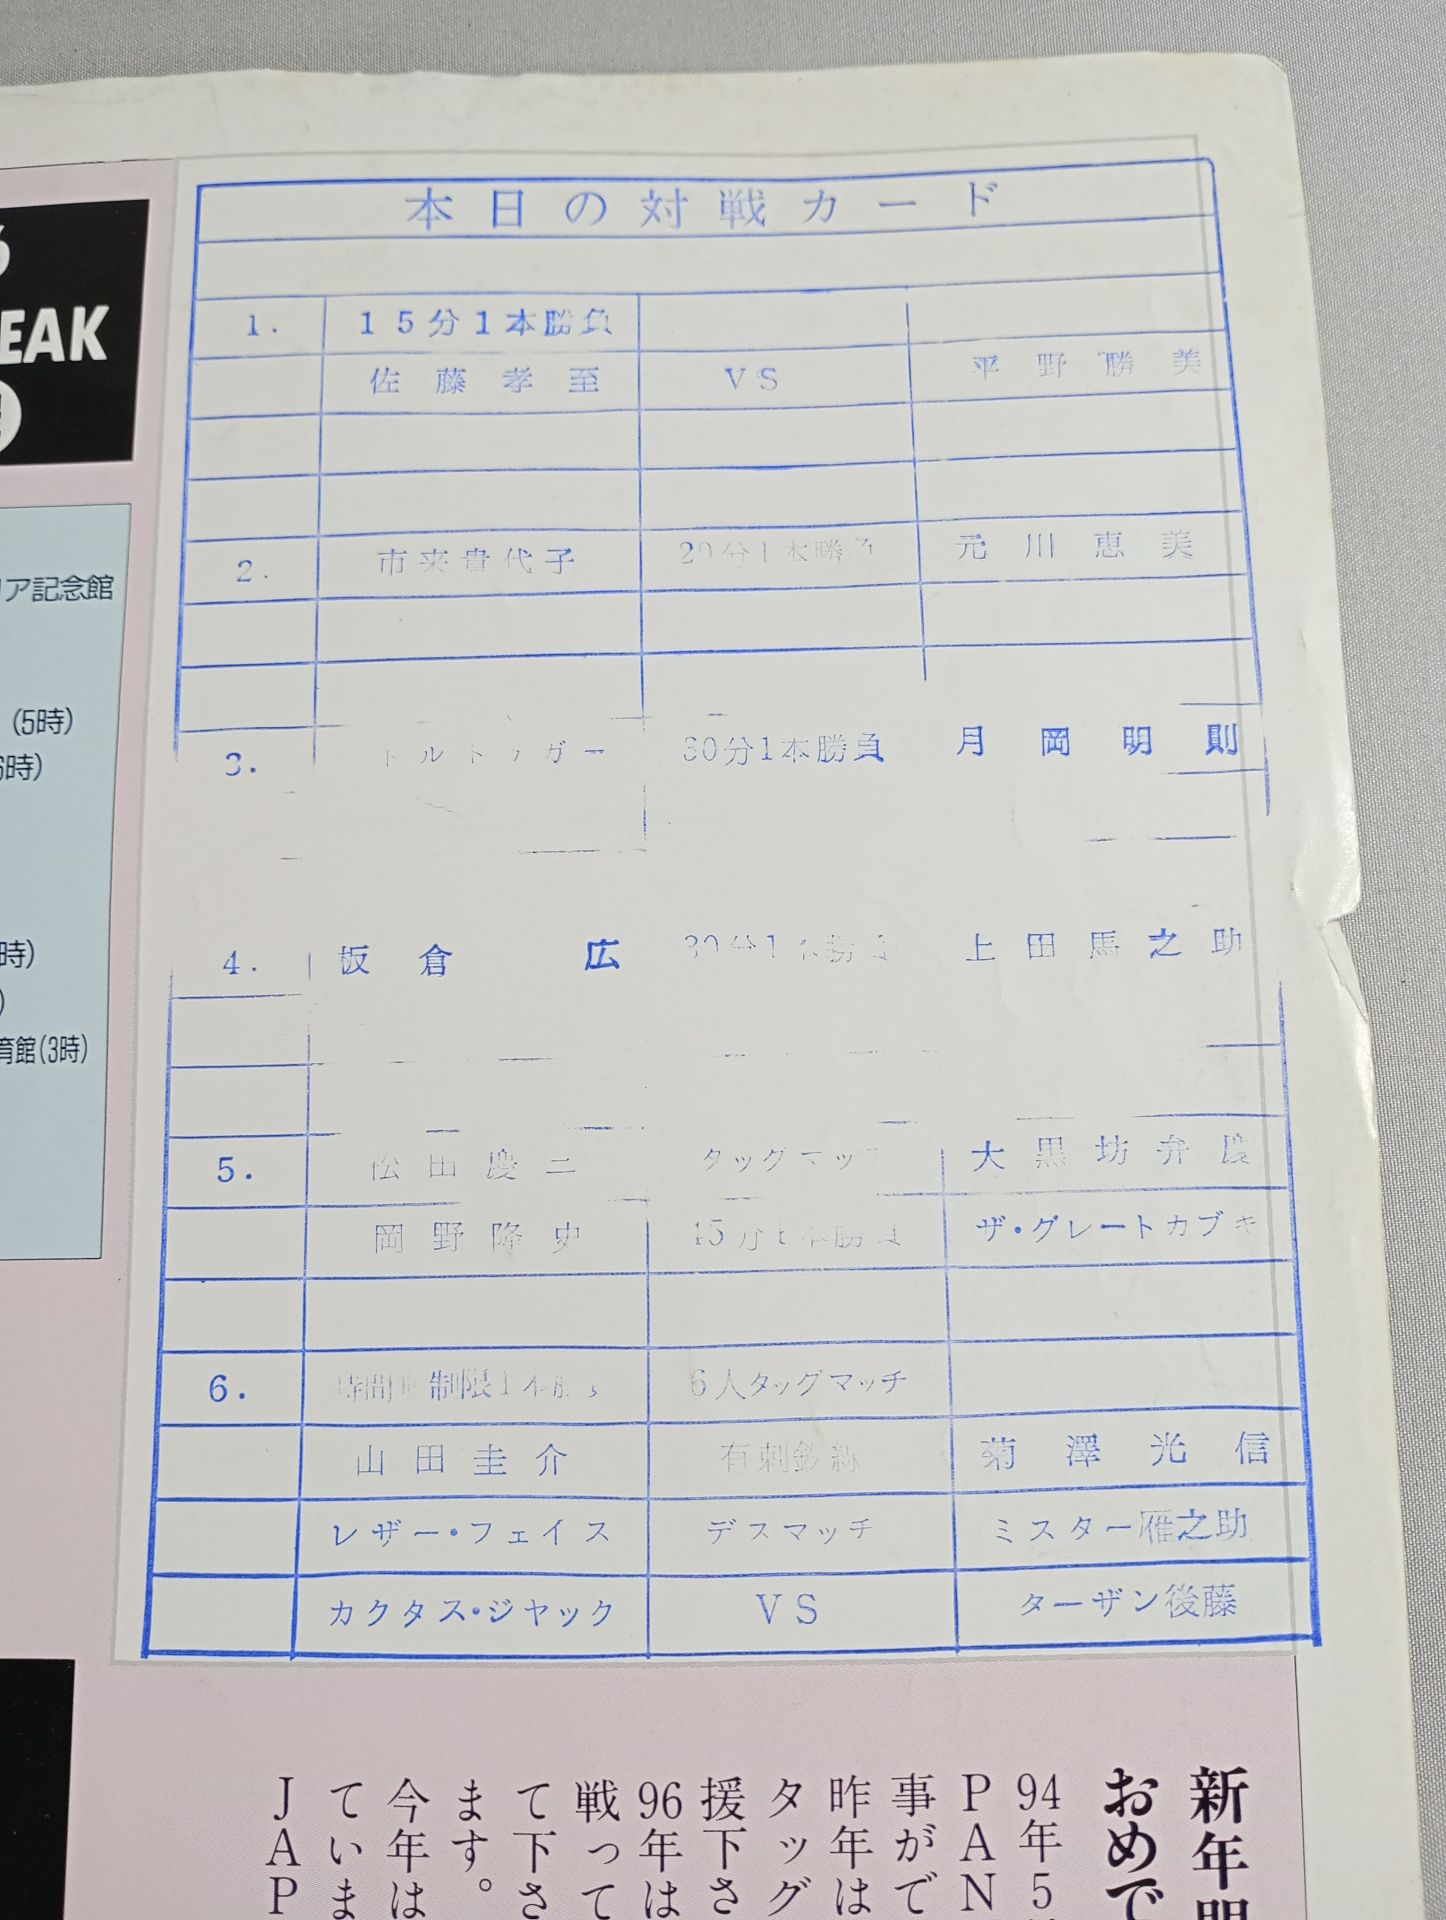 本日の対戦カード
1. 15分1本勝負
佐藤孝至 VS 平野勝美
2. 市来貴代子 20分1本勝負 元川恵美
3. ドルトッガー 30分1本勝負 月岡明則
4. 板倉広 30分1本勝負 上田馬之助
5. 松田慶三 タッグマッチ 大黒坊弁慶
岡野隆史 45分1本勝負 ザ・グレートカブキ
6. 時間無制限1本勝負 6人タッグマッチ
山田圭介 有刺鉄線 菊澤光信
レザー・フェイス デスマッチ ミスター雁之助
カクタス・ジャック VS ターザン後藤
EAK
リア記念館
(5時)
時)
時)
育館(3時)
新年明
おめで
94年5
PAN
事がで
昨年は
タッグ
援下さ
96年は
戦って
て下さ
ます。
今年は
ていま
JAP